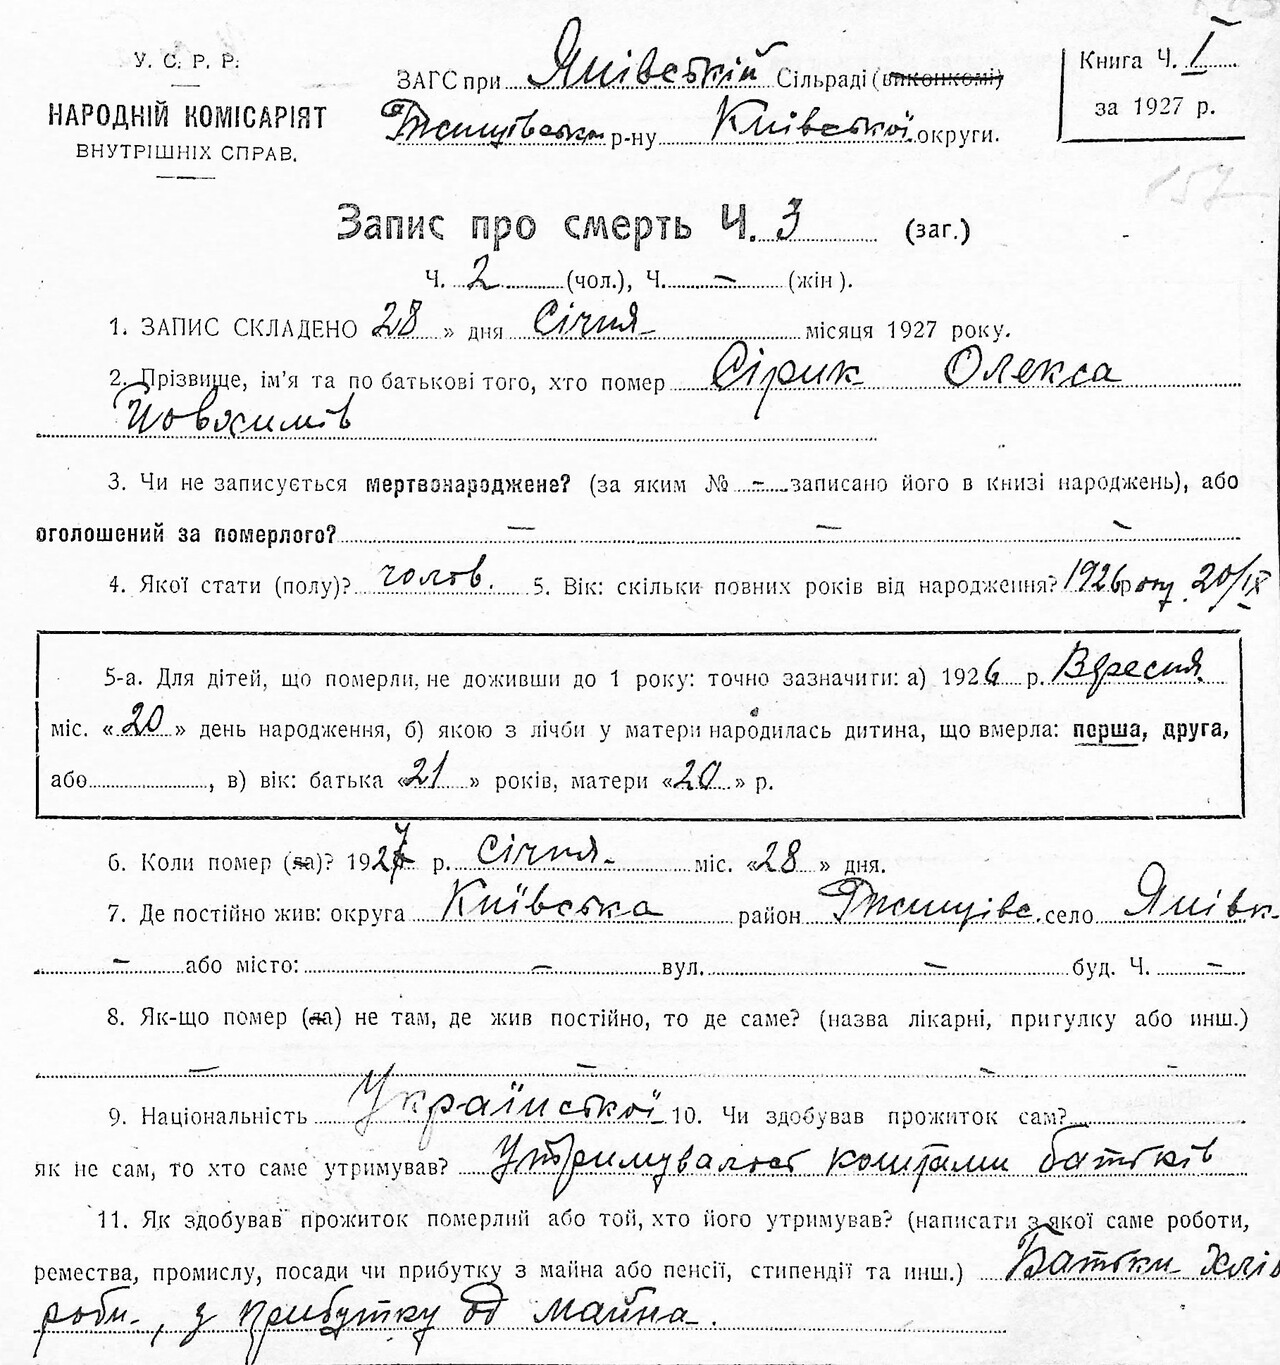 У. С. Р. Р.
НАРОДНІЙ КОМІСАРІЯТ
ВНУТРІШНІХ СПРАВ.
ЗАГС при Янівській Сільраді (виконкомі)
Ржищівськ. р-ну Київської округи.
Книга Ч. I
за 1927 р.
157
Запис про смерть Ч. 3 (заг.)
Ч. 2 (чол.), Ч. – (жін).
1. ЗАПИС СКЛАДЕНО 28 » дня Січня місяця 1927 року.
2. Прізвище, ім'я та по батькові того, хто помер Сірик Олекса
Йовхимів
3. Чи не записується мертвонароджене? (за яким № – записано його в книзі народжень), або
оголошений за померлого? – – –
4. Якої стати (полу)? чолов. 5. Вік: скільки повних років від народження? 1926 року 20/IX
5-а. Для дітей, що померли, не доживши до 1 року: точно зазначити: а) 1926 р. Вересня
міс. «20» день народження, б) якою з лічби у матери народилась дитина, що вмерла: перша, друга,
або , в) вік: батька «21» років, матери «20» р.
6. Коли помер (ла)? 1927 р. Січня міс. «28» дня.
7. Де постійно жив: округа Київська район Ржищівс. село Янівк-
– або місто: – вул. – буд. Ч. –
8. Як-що помер (ла) не там, де жив постійно, то де саме? (назва лікарні, пригулку або инш.)
– – – –
9. Національність Української 10. Чи здобував прожиток сам?
як не сам, то хто саме утримував? Утримувалось коштами батьків
11. Як здобував прожиток померлий або той, хто його утримував? (написати з якої саме роботи,
ремества, промислу, посади чи прибутку з майна або пенсії, стипендії та инш.) Батьки хлі
роби, з прибутку од майна.